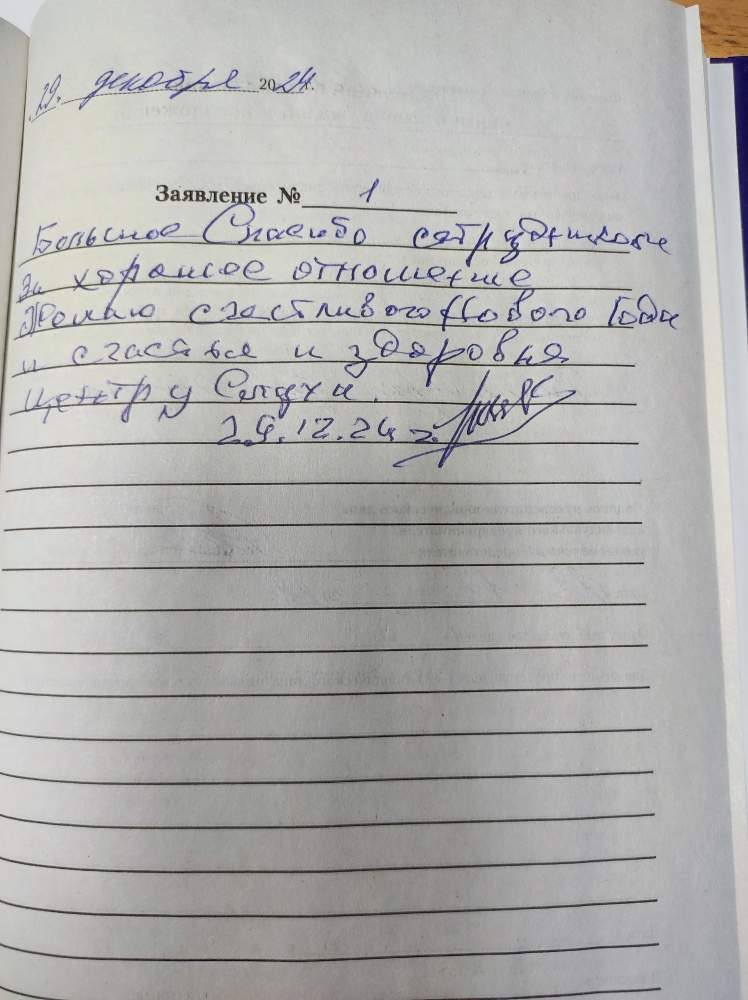 29. декабря 2024г.
Заявление № 1
Большое Спасибо сатрудникам
За хорошее отношение
Желаю счастливого Нового Года
и счастья и здоровья
Центру Слуха.
29.12.24 г.